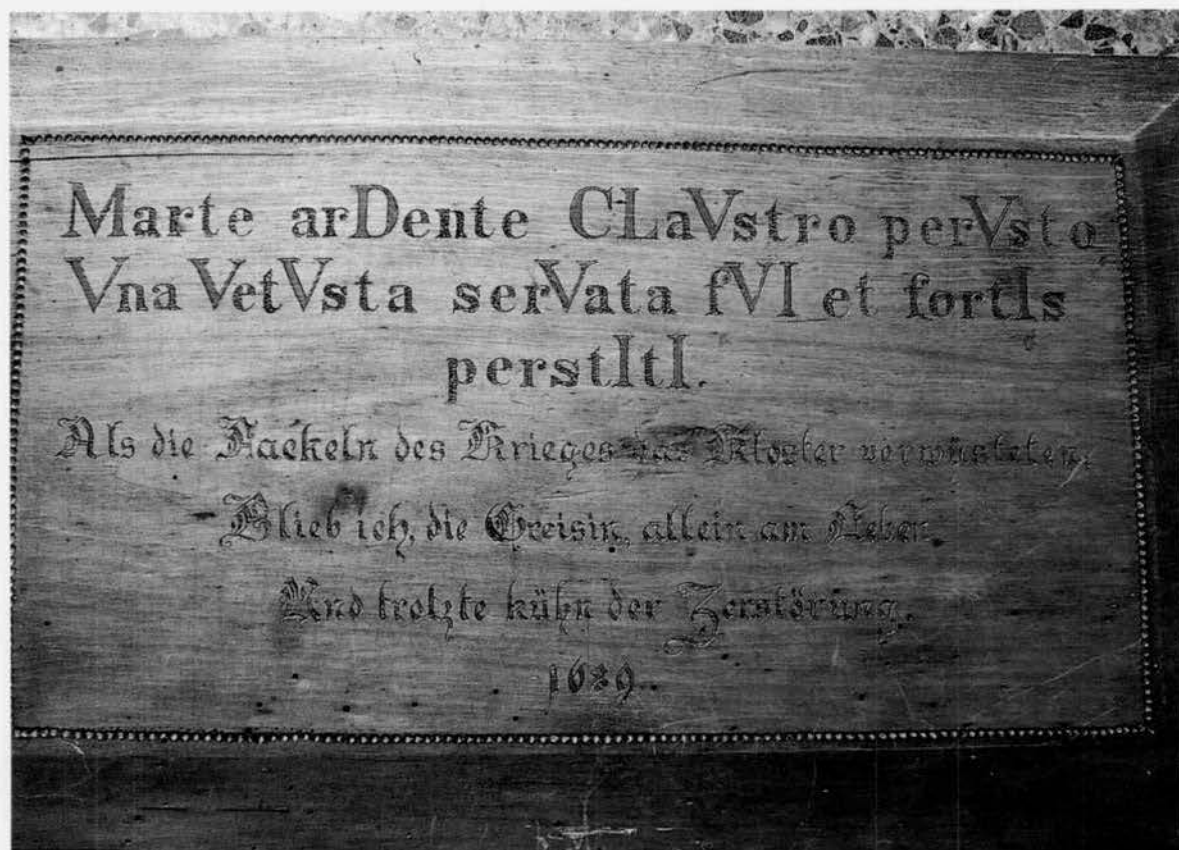 Marte arDente CLaVstro perVsto
Vna VetVsta serVata fVI et fortIs
perstItI.
Als die Fackeln des Krieges das Kloster verwüsteten,
Blieb ich, die Greisin, allein am Leben
Und trotzte kühn der Zerstörung.
1689.